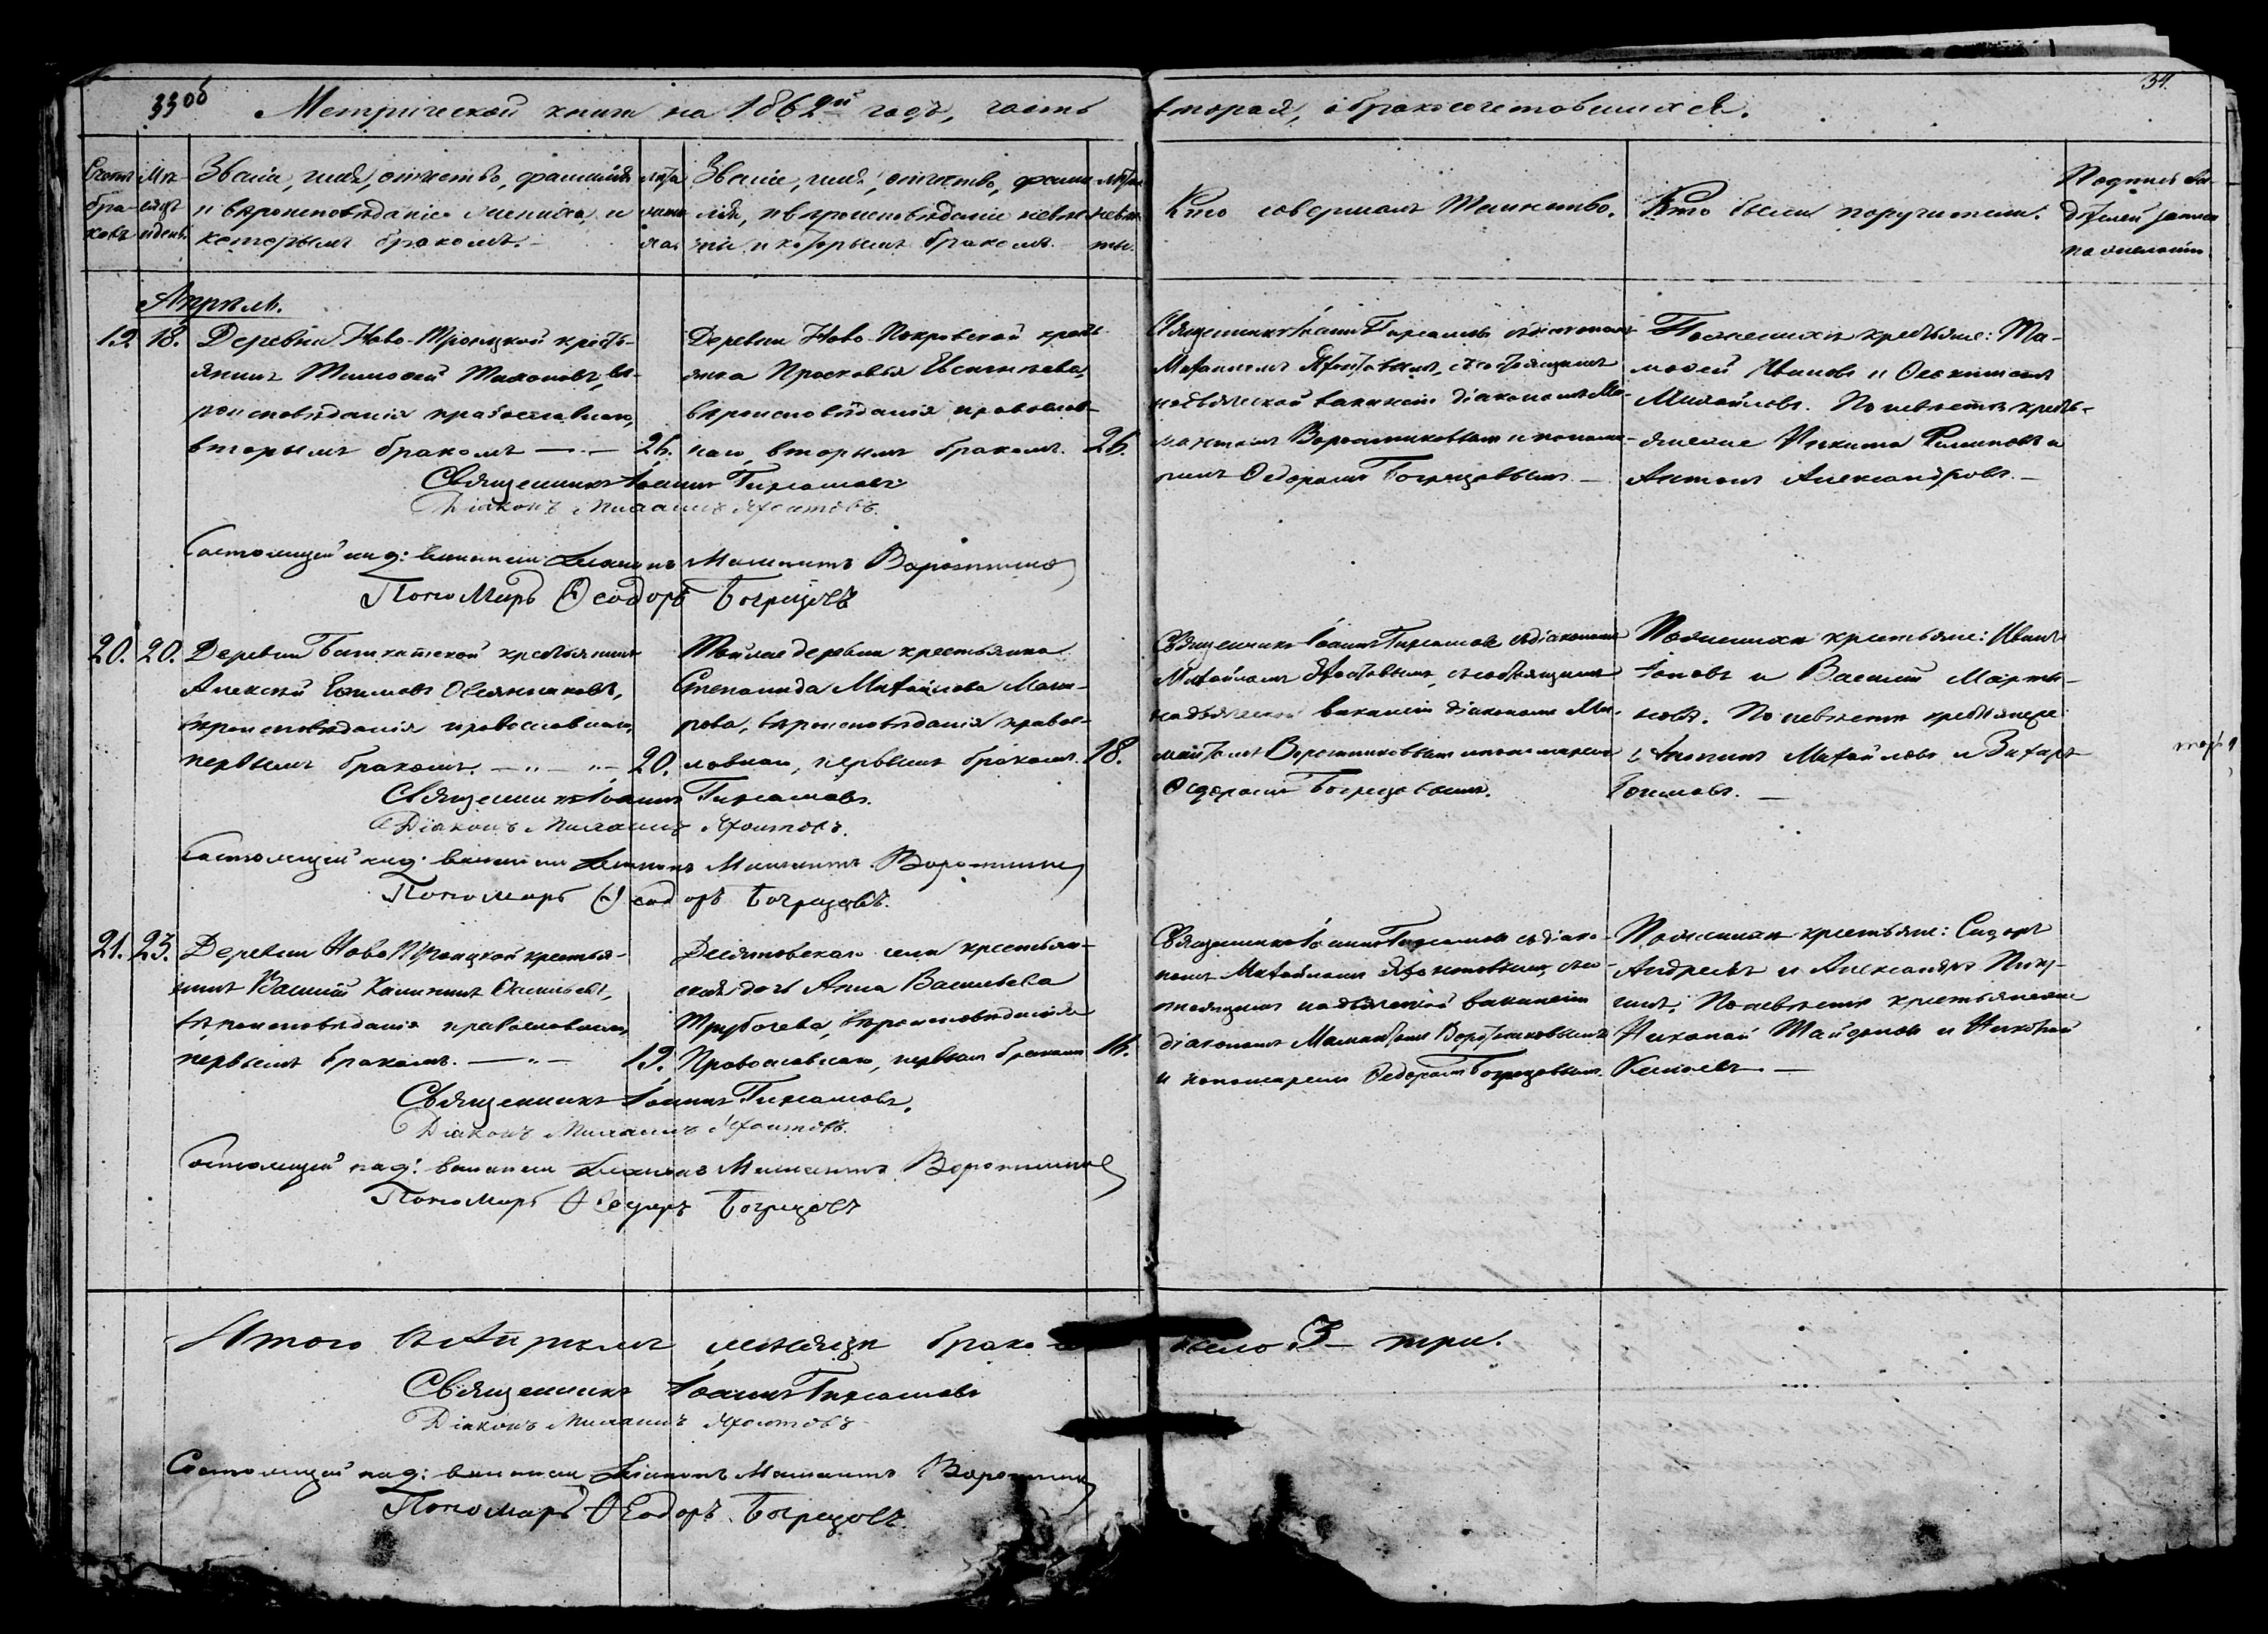 33об
34.
Метрической книги на 1862ой годъ, часть вторая, о бракосочетовшихся.
Счетъ бра-ковъ
Мѣ-сяцъ и день.
Званіе, имя, отчество, фамилія
и вѣроисповѣданіе жениха, и
которымъ бракомъ.
лѣта
жени
ха.
Званіе, имя, отчество, фами
лія, и вѣроисповѣданіе невѣс
ты и которымъ бракомъ.
лѣта
невѣс
ты.
Кто совершалъ Таинство.
Кто были поручители.
Подпись сви-
дѣтелей записи
по желанію
Апрѣль.
19. 18.
Деревни Ново-Троицкой кресть-
янинъ Тимофей Тихоновъ, вѣ-
роисповѣданія православнаго,
вторымъ бракомъ 26.
Деревни Ново-Покровской кресть
янка Просковья Евгеньева,
вѣроисповѣданія православ-
наго, вторымъ бракомъ. 26.
Священникъ Іоаннъ съ діакономъ
Михаиломъ состоящимъ
вакансіи діакономъ Ма-
мантомъ Воротниковымъ и понома-
ремъ Федоромъ Богрецовымъ.
По женихѣ крестьяне: Ти-
мофей Ивановъ и
Михайловъ. По невѣстѣ кресть-
яне Никита Филиповъ и
Антонъ Александровъ.
Священникъ Іоаннъ
Діаконъ Михаилъ
Состоящій на д: вакансіи Діаконъ Мамантъ Воротниковъ
Пономарь Ѳеодоръ Богрецовъ
20. 20.
Деревни крестьянинъ
Алексѣй Ефимовъ Овсянниковъ,
вѣроисповѣданія православнаго,
первымъ бракомъ. 20.
Той же деревни крестьянка
Степанида Михайлова Мака-
рова, вѣроисповѣданія правос-
лавнаго, первымъ бракомъ. 18.
Священникъ Іоаннъ съ діакономъ
Михайломъ состоящимъ
вакансіи діакономъ Ма-
мантомъ Воротниковымъ и пономаремъ
Федоромъ Богрецовымъ.
По женихѣ крестьяне: Иванъ
и Василій Марты-
новъ. По невѣстѣ крестьяне:
Антонъ Михайловъ и Захаръ
Ефимовъ.
Священникъ Іоаннъ
Діаконъ Михаилъ
Состоящій на д: вакансіи Діаконъ Мамантъ Воротниковъ
Пономарь Ѳеодоръ Богрецовъ.
21. 23.
Деревни Ново Троицкой крестья-
нинъ Василій Калининъ
вѣроисповѣданія православнаго,
первымъ бракомъ. 19.
Десятовскаго села крестьян-
ская дочь Анна Васильева
Трубачева, вѣроисповѣданія
Православнаго, первымъ бракомъ 16.
Священникъ Іоаннъ съ діако-
номъ Михайломъ со-
стоящимъ вакансіи
діакономъ Мамантомъ Воротниковымъ
и пономаремъ Федоромъ Богрецовымъ.
По женихѣ крестьяне: Сидоръ
Андреевъ и Александръ
По невѣстѣ крестьяне
Николай и
Священникъ Іоаннъ
Діаконъ Михаилъ
Состоящій на д: вакансіи Діаконъ Мамантъ Воротниковъ
Пономарь Ѳеодоръ Богрецовъ
Итого въ Апрѣлѣ мѣсяцѣ браковъ было 3 – три.
Священникъ Іоаннъ
Діаконъ Михаилъ
Состоящій на д: вакансіи Діаконъ Мамантъ Воротниковъ
Пономарь Ѳеодоръ Богрецовъ.